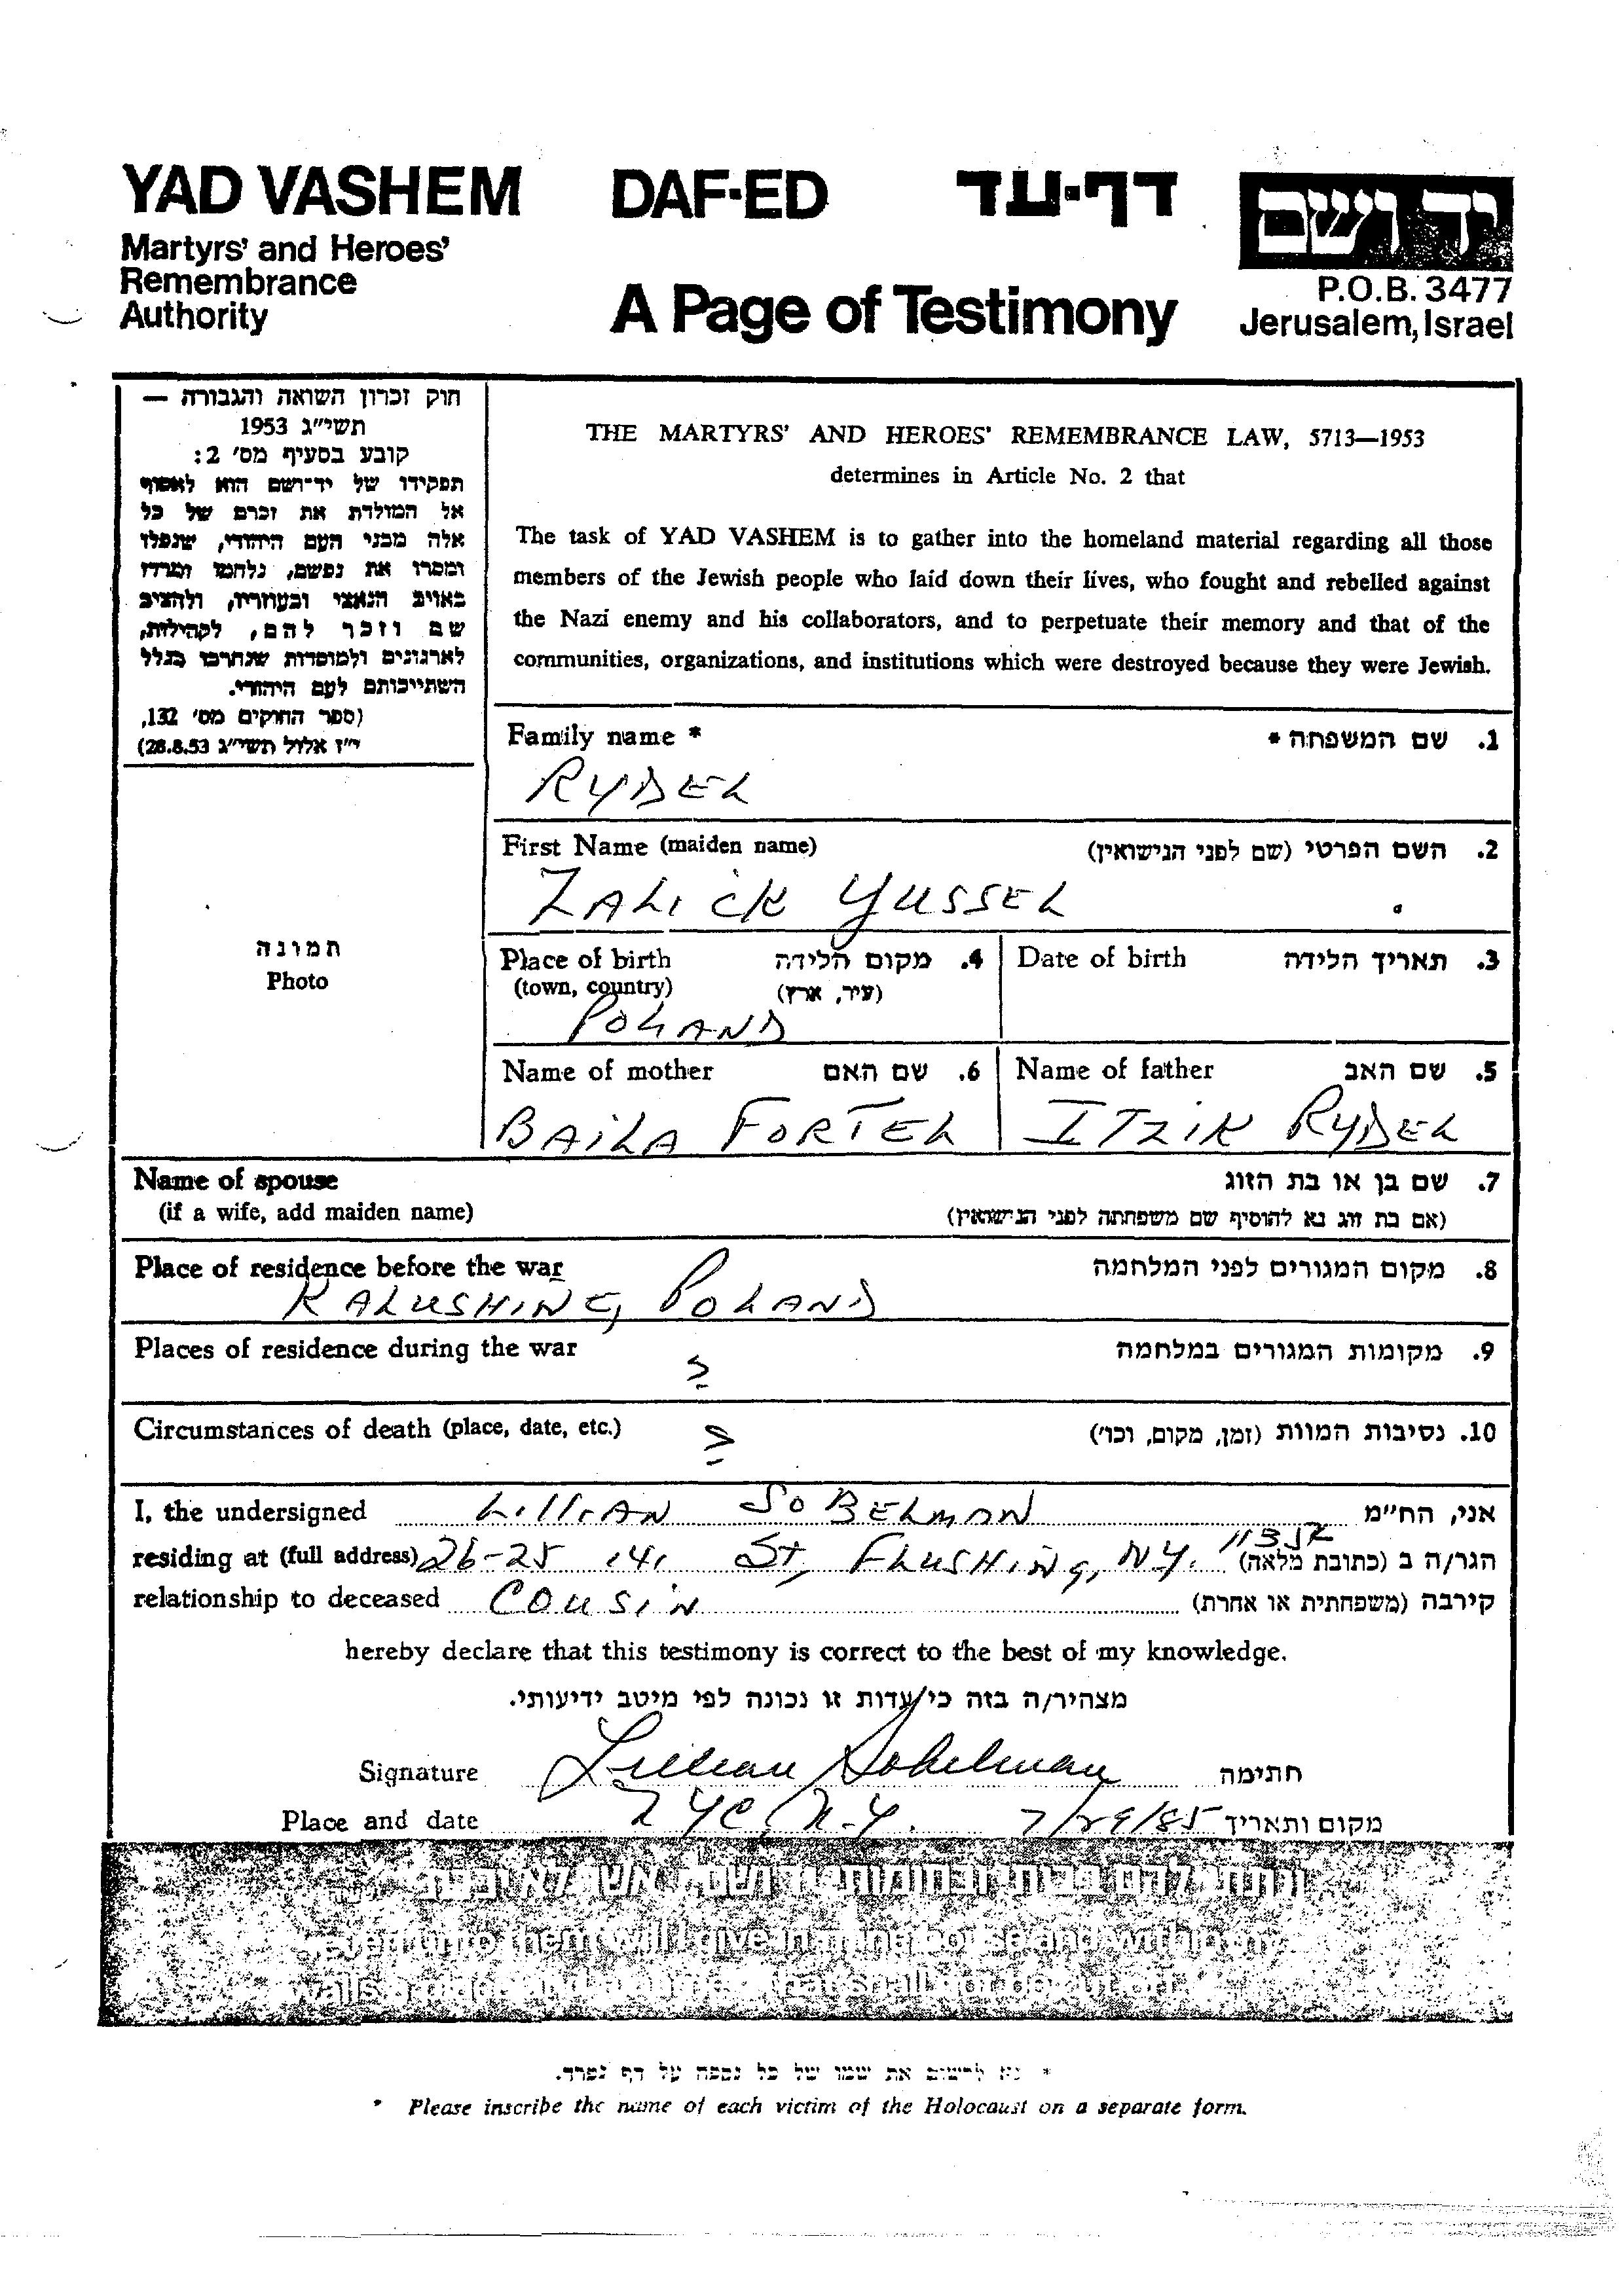 YAD VASHEM DAF-ED דף-עד ידושם
Martyrs' and Heroes'
Remembrance
Authority
A Page of Testimony
P.O.B. 3477
Jerusalem, Israel
חוק זכרון השואה והגבורה —
תשי״ג 1953
קובע בסעיף מס' 2:
תפקידו של יד-ושם הוא לאסוף
אל המולדת את זכרם של כל
אלה מבני העם היהודי, שנפלו
ומסרו את נפשם, נלחמו ומרדו
באויב הנאצי ובעוזריו, ולהציב
שם וזכר להם, לקהילות,
לארגונים ולמוסדות שנחרבו בגלל
השתייכותם לעם היהודי.
(ספר החוקים מס' 132,
י״ז אלול תשי״ג 28.8.53)
THE MARTYRS' AND HEROES' REMEMBRANCE LAW, 5713—1953
determines in Article No. 2 that
The task of YAD VASHEM is to gather into the homeland material regarding all those
members of the Jewish people who laid down their lives, who fought and rebelled against
the Nazi enemy and his collaborators, and to perpetuate their memory and that of the
communities, organizations, and institutions which were destroyed because they were Jewish.
תמונה
Photo
Family name * 1. שם המשפחה *
RYDEL
First Name (maiden name) 2. השם הפרטי (שם לפני הנישואין)
ZALICK YUSSEL
Place of birth 4. מקום הלידה
(town, country) (עיר, ארץ)
POLAND
Date of birth 3. תאריך הלידה
Name of mother 6. שם האם
BAILA FORTEL
Name of father 5. שם האב
ITZIK RYDEL
Name of spouse 7. שם בן או בת הזוג
(if a wife, add maiden name) (אם בת זוג נא להוסיף שם משפחתה לפני הנישואין)
Place of residence before the war 8. מקום המגורים לפני המלחמה
KALUSHING, POLAND
Places of residence during the war ? 9. מקומות המגורים במלחמה
Circumstances of death (place, date, etc.) ? 10. נסיבות המוות (זמן, מקום, וכו')
I, the undersigned LILLIAN SOBELMAN אני, הח״מ
residing at (full address) 26-25 141 St, FLUSHING, N.Y. הגר/ה ב (כתובת מלאה)
relationship to deceased COUSIN קירבה (משפחתית או אחרת)
hereby declare that this testimony is correct to the best of my knowledge.
מצהיר/ה בזה כי עדות זו נכונה לפי מיטב ידיעותי.
Signature Lillian Sobelman חתימה
Place and date NYC, N.Y. 7/29/85 מקום ותאריך
ונתתי להם בביתי ובחומותי יד ושם... אשר לא יכרת
...even unto them will I give in mine house and within my
walls a place and a name... that shall not be cut off.
* נא לרשום את שמו של כל נספה על דף נפרד.
* Please inscribe the name of each victim of the Holocaust on a separate form.